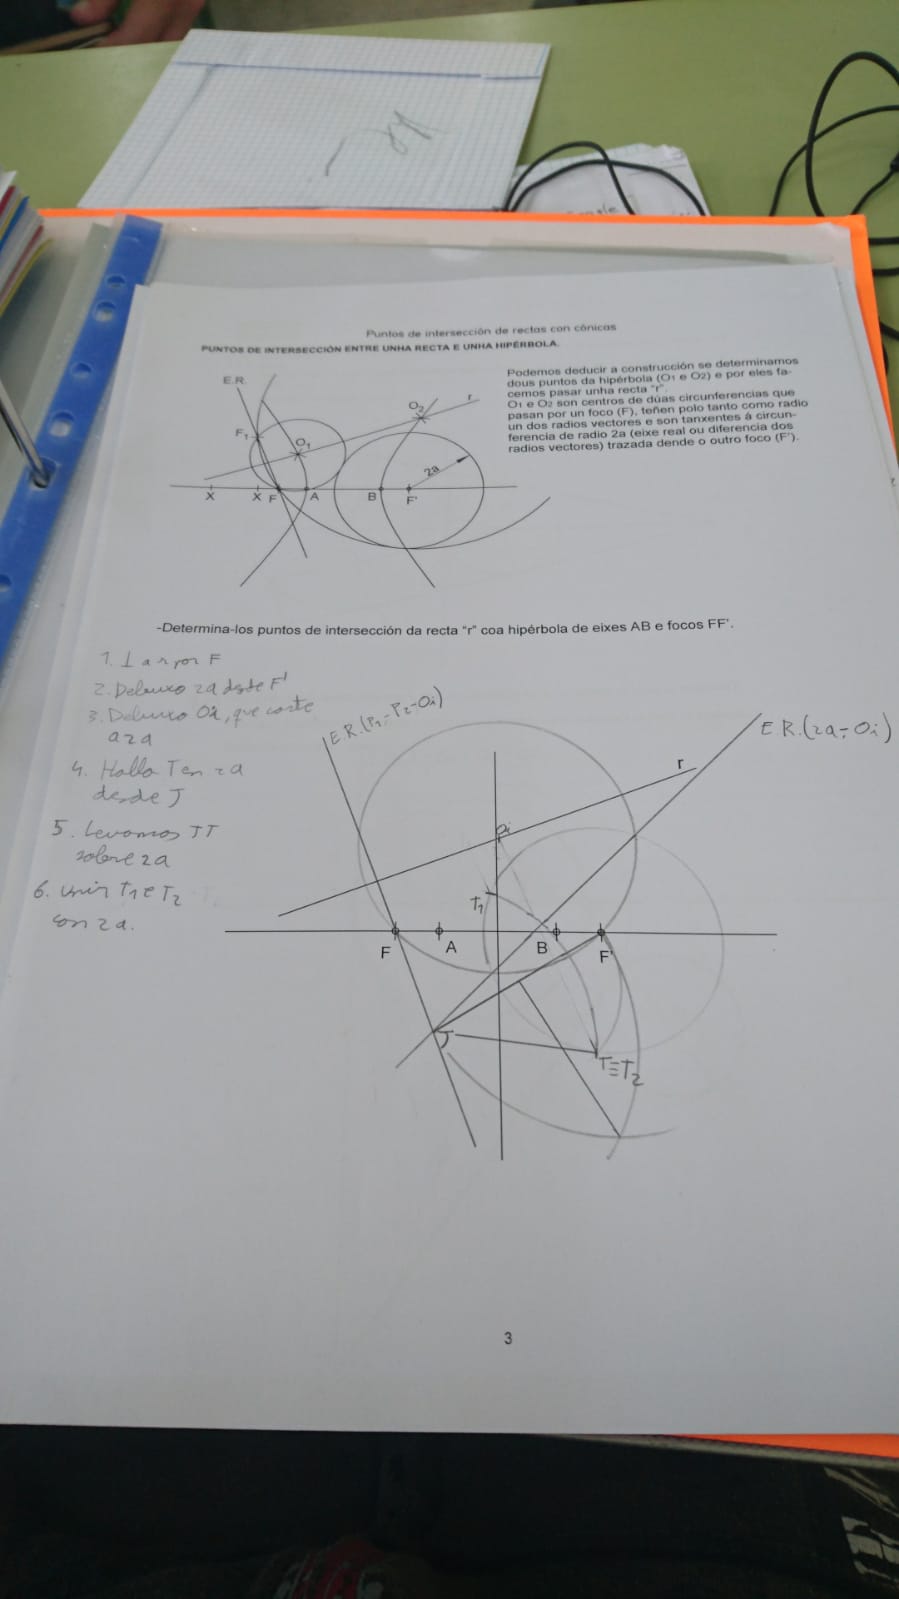 Puntos de intersección de rectas con cónicas
PUNTOS DE INTERSECCIÓN ENTRE UNHA RECTA E UNHA HIPÉRBOLA.
Podemos deducir a construcción se determinamos
dous puntos da hipérbola (O1 e O2) e por eles fa-
cemos pasar unha recta "r".
O1 e O2 son centros de dúas circunferencias que
pasan por un foco (F), teñen polo tanto como radio
un dos radios vectores e son tanxentes á circun-
ferencia de radio 2a (eixe real ou diferencia dos
radios vectores) trazada dende o outro foco (F').
E.R.
r
O2
F1
O1
2a
X X F A B F'
-Determina-los puntos de intersección da recta "r" coa hipérbola de eixes AB e focos FF'.
1. ⊥ a r por F
2. Debuxo 2a desde F'
3. Debuxo Oi, que corte
a 2a
4. Hallo T en 2a
desde J
5. Levamos JT
sobre 2a
6. Unir T1 e T2
con 2a.
E.R.(P1-P2-Oi)
E.R.(2a-Oi)
r
Oi
T1
F A B F'
J
T≡T2
3